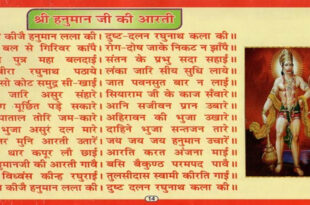 श्री हनुमान जी की आरती
कीजै हनुमान लला की। दुष्ट-दलन रघुनाथ कला की॥
बल से गिरिवर काँपै। रोग-दोष जाके निकट न झाँपै॥
पुत्र महा बलदाई। संतन के प्रभु सदा सहाई॥
बीरा रघुनाथ पठाये। लंका जारि सीय सुधि लाये॥
सो कोट समुद्र सी-खाई। जात पवनसुत बार न लाई॥
जारि असुर संहारे। सियाराम जी के काज सँवारे॥
मूर्छित पड़े सकारे। आनि सजीवन प्रान उबारे॥
पाताल तोरि जम-कारे। अहिरावन की भुजा उखारे॥
भुजा असुर दल मारे। दाहिने भुजा सन्तजन तारे॥
र मुनि आरती उतारें। जय जय जय हनुमान उचारें॥
थार कपूर लौ छाई। आरति करत अंजना माई॥
हनुमानजी की आरती गावै। बसि बैकुण्ठ परमपद पावै॥
विध्वंस कीन्ह रघुराई। तुलसीदास स्वामी कीरति गाई॥
कीजै हनुमान लला की। दुष्ट दलन रघुनाथ कला की॥
14